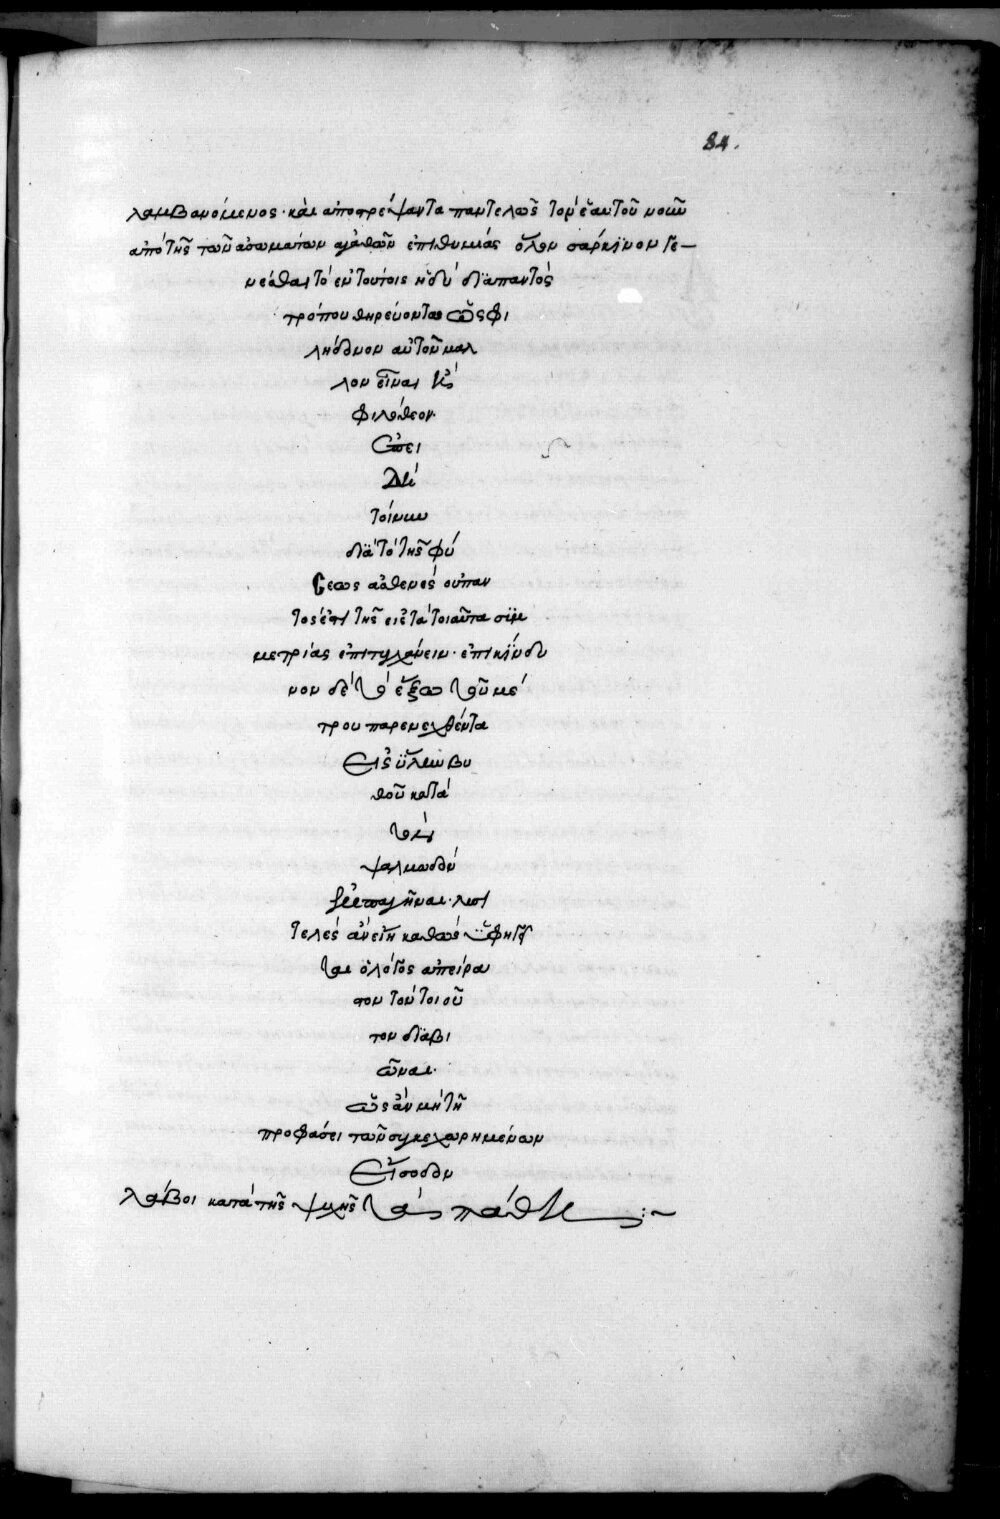 84.
λαμβανόμενος · καὶ ἀποτρέψαντα παντελῶς τὸν ἑαυτοῦ νοῦν
ἀπὸ τῆς τῶν ἀσωμάτων ἀγαθῶν ἐπιθυμίας ὅλον σάρκϊνον γε-
νέσθαι τὸ ἐν τούτοις ἡδὺ διὰπαντὸς
τρόπου θηρεύοντα ὥς φι
λήδονον αὐτὸν μαλ
λον εἶναι ἢ
φιλόθεον.
ἐπεὶ
δὲ
τοίνυν
διὰ τὸ τῆς φύ
σεως ἀσθενὲς οὐ παν
τός ἐστι τῆς εἰς τὰ τοιαῦτα συμ
μετρίας ἐπιτυγχάνειν · ἐπικίνδυ
νον δὲ τὸ ἔξω τοῦ μέ
τρου παρενεχθέντα
εἰς ὕλην βυ
θοῦ κατὰ
τὸν
ψαλμωδὸν
ἐμπαγῆναι · λυσι
τελὲς ἂν εἴη καθὼς ὑφηγεῖ
ται ὁ λόγος ἀπείρα
τον τὸν τοιού
τον διαβι
ῶναι ·
ὡς ἂν μὴ τῇ
προφάσει τῶν συγκεχωρημένων
εἴσοδον
λάβοι κατὰ τῆς ψυχῆς τὰ πάθη :~